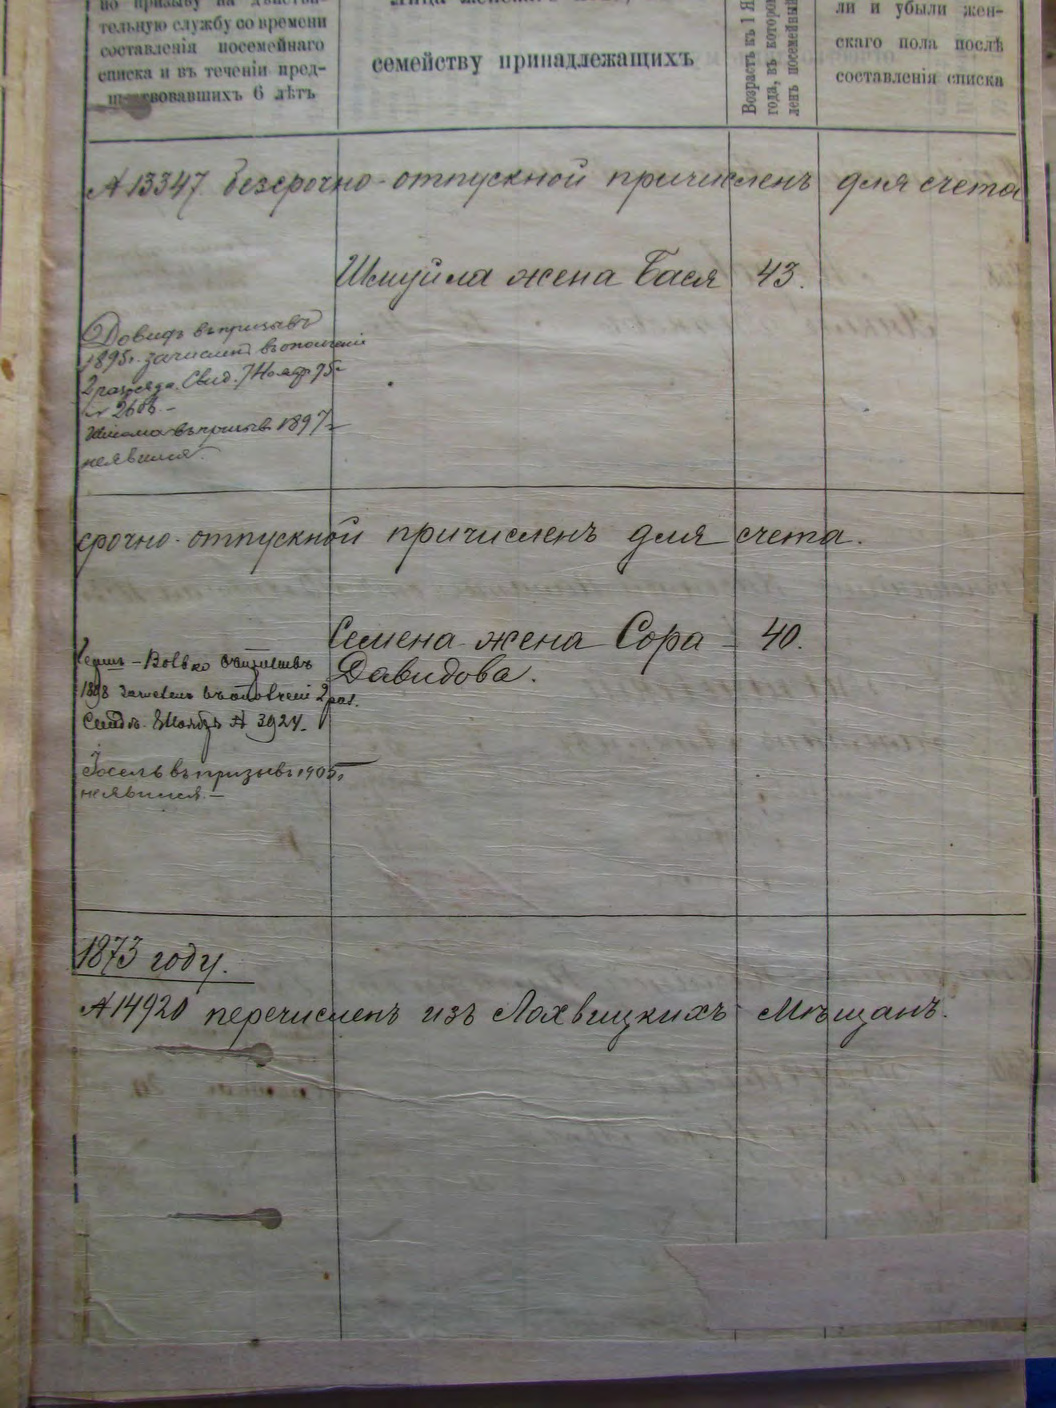 по призыву на действи-
тельную службу со времени
составленія посемейнаго
списка и въ теченіи пред-
шествовавшихъ 6 лѣтъ
Лица женскаго пола,
семейству принадлежащихъ
Возрастъ къ 1 Я
года, въ которо
ленъ посемейный
ли и убыли жен-
скаго пола послѣ
составленія списка
№ 13347 безсрочно-отпускной причисленъ для счета
Шмуйла жена Бася 43.
Довидъ въ призывъ
1895г. зачисленъ въ ополченіе
2 разряда. Свид. 7 Ноябр 95г
№
въ призывъ 1897г
неявился.
срочно-отпускной причисленъ для счета.
Семена жена Сора 40.
Давидова.
Гершъ-Волько въ
1898 зачисленъ въ ополченіе 2 раз.
Свид. Ноябр № 3924.
Іосель въ призывъ 1905г
неявился.-
1873 году.
№ 14920 перечисленъ изъ Лохвицкихъ Мѣщанъ.